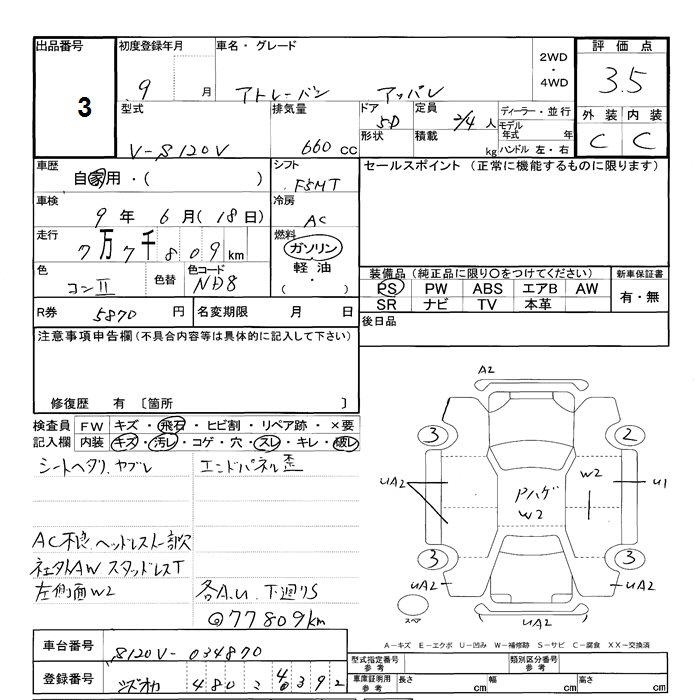 出品番号 初度登録年月 車名・グレード 2WD・4WD 評価点
3 9 月 アトレーバン アッパレ 3.5
型式 排気量 ドア 定員 ディーラー・並行 外装 内装
V-S120V 660 cc 5D 2/4 人 モデル年式 年 C C
形状 積載 kg ハンドル 左・右
車歴 自家用・( ) シフト F5MT セールスポイント (正常に機能するものに限ります)
車検 9 年 6 月 (18日) 冷房 AC
走行 7万7千809km 燃料 ガソリン 軽油 ( ・ )
色 コンII 色替 色コード ND8 装備品 (純正品に限り○をつけてください) 新車保証書
PS PW ABS エアB AW 有・無
SR ナビ TV 本革
R券 5870 円 名変期限 月 日 後日品
注意事項申告欄 (不具合内容等は具体的に記入して下さい)
修復歴 有 〔箇所 〕
検査員 FW キズ・飛石・ヒビ割・リペア跡・×要
記入欄 内装 キズ・汚レ・コゲ・穴・スレ・キレ・破レ
シートヘタリ、ヤブレ エンドパネル歪
AC不良、ヘッドレスト欠
社外AW スタッドレスT
左側面W2 各A.U 下廻りS
◎77809km
A2
3 2
UA2 W2 U1
Pハゲ
W2
3 3
UA2 UA2
スペア UA2
A-キズ E-エクボ U-凹み W-補修跡 S-サビ C-腐食 XX-交換済
車台番号 S120V-034870 型式指定番号 参考 類別区分番号 参考
登録番号 シズオカ 480 こ 4639 2 車庫証明用 参考 長さ cm 幅 cm 高さ cm